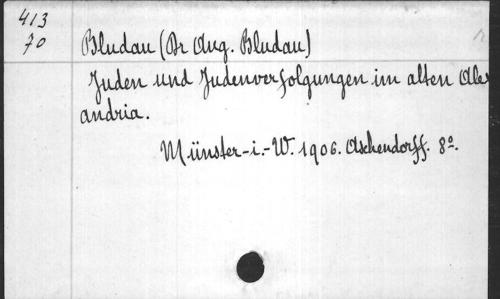 413
70
Bludau (Dr Aug. Bludau)
Juden und Judenverfolgungen im alten Alex
andria.
Münster-i.-W. 1906. Aschendorff. 8º.